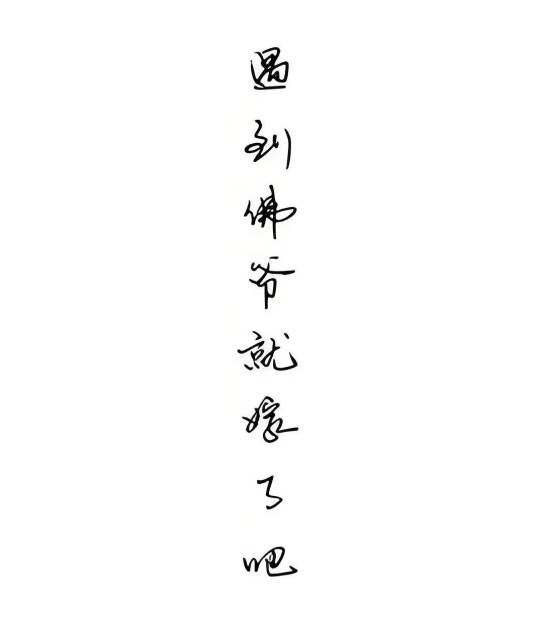 遇到佛爷就嫁了吧